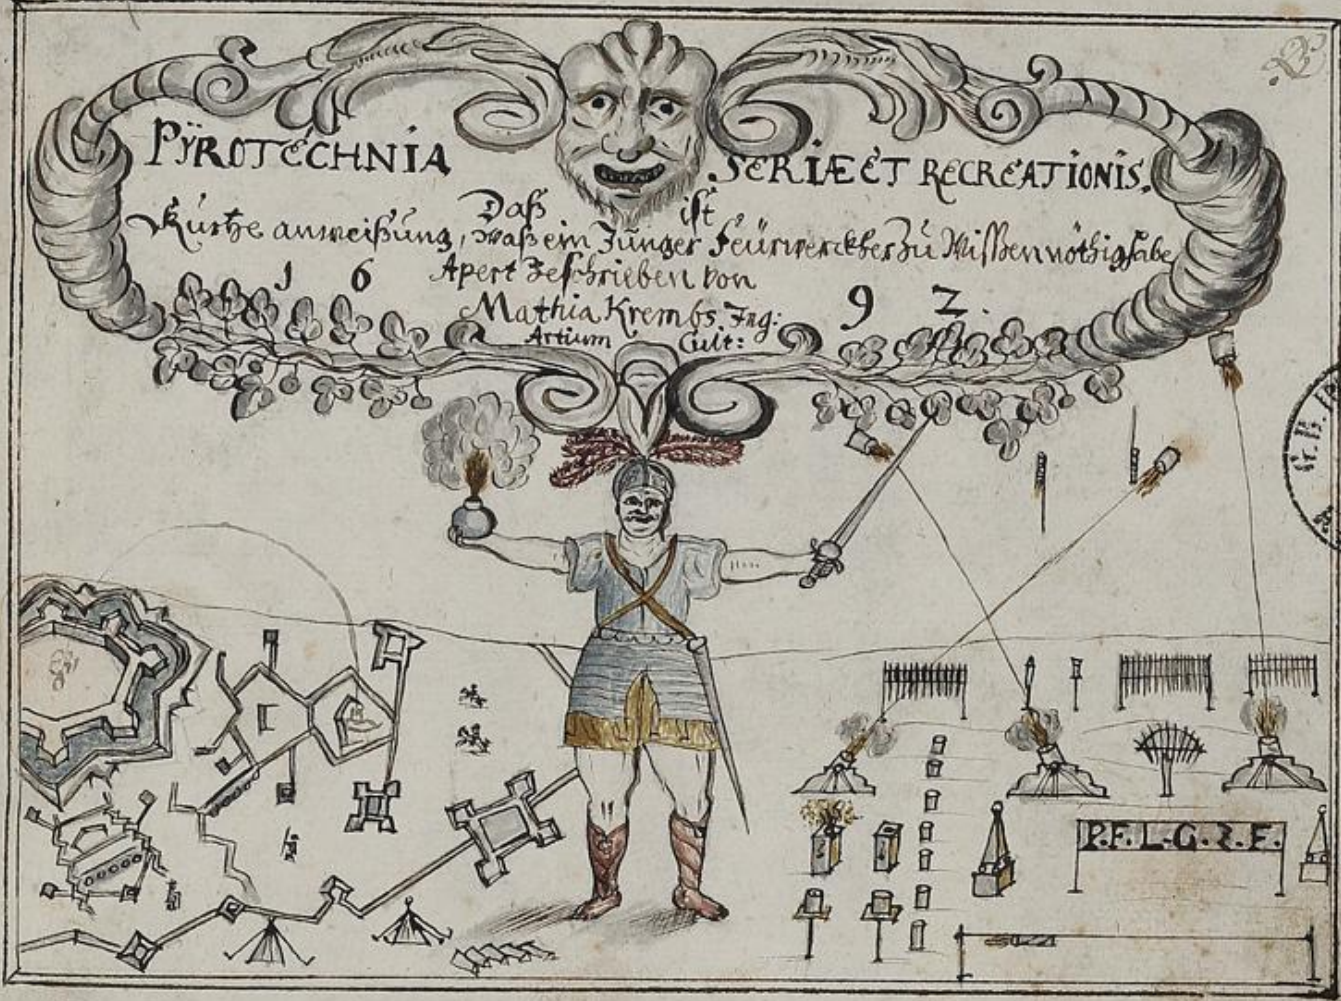 PŸROTECHNIA SERIÆ ET RECREATIONIS.
Daß ist
Kurtze anweißung, Waß ein Junger Feürwerckher Zu Wißen nöthig habe
Apert Beschrieben von
1 6 9 2.
Mathia Krembs Ing:
Artium Cult:
P.F.L.G.R.F.